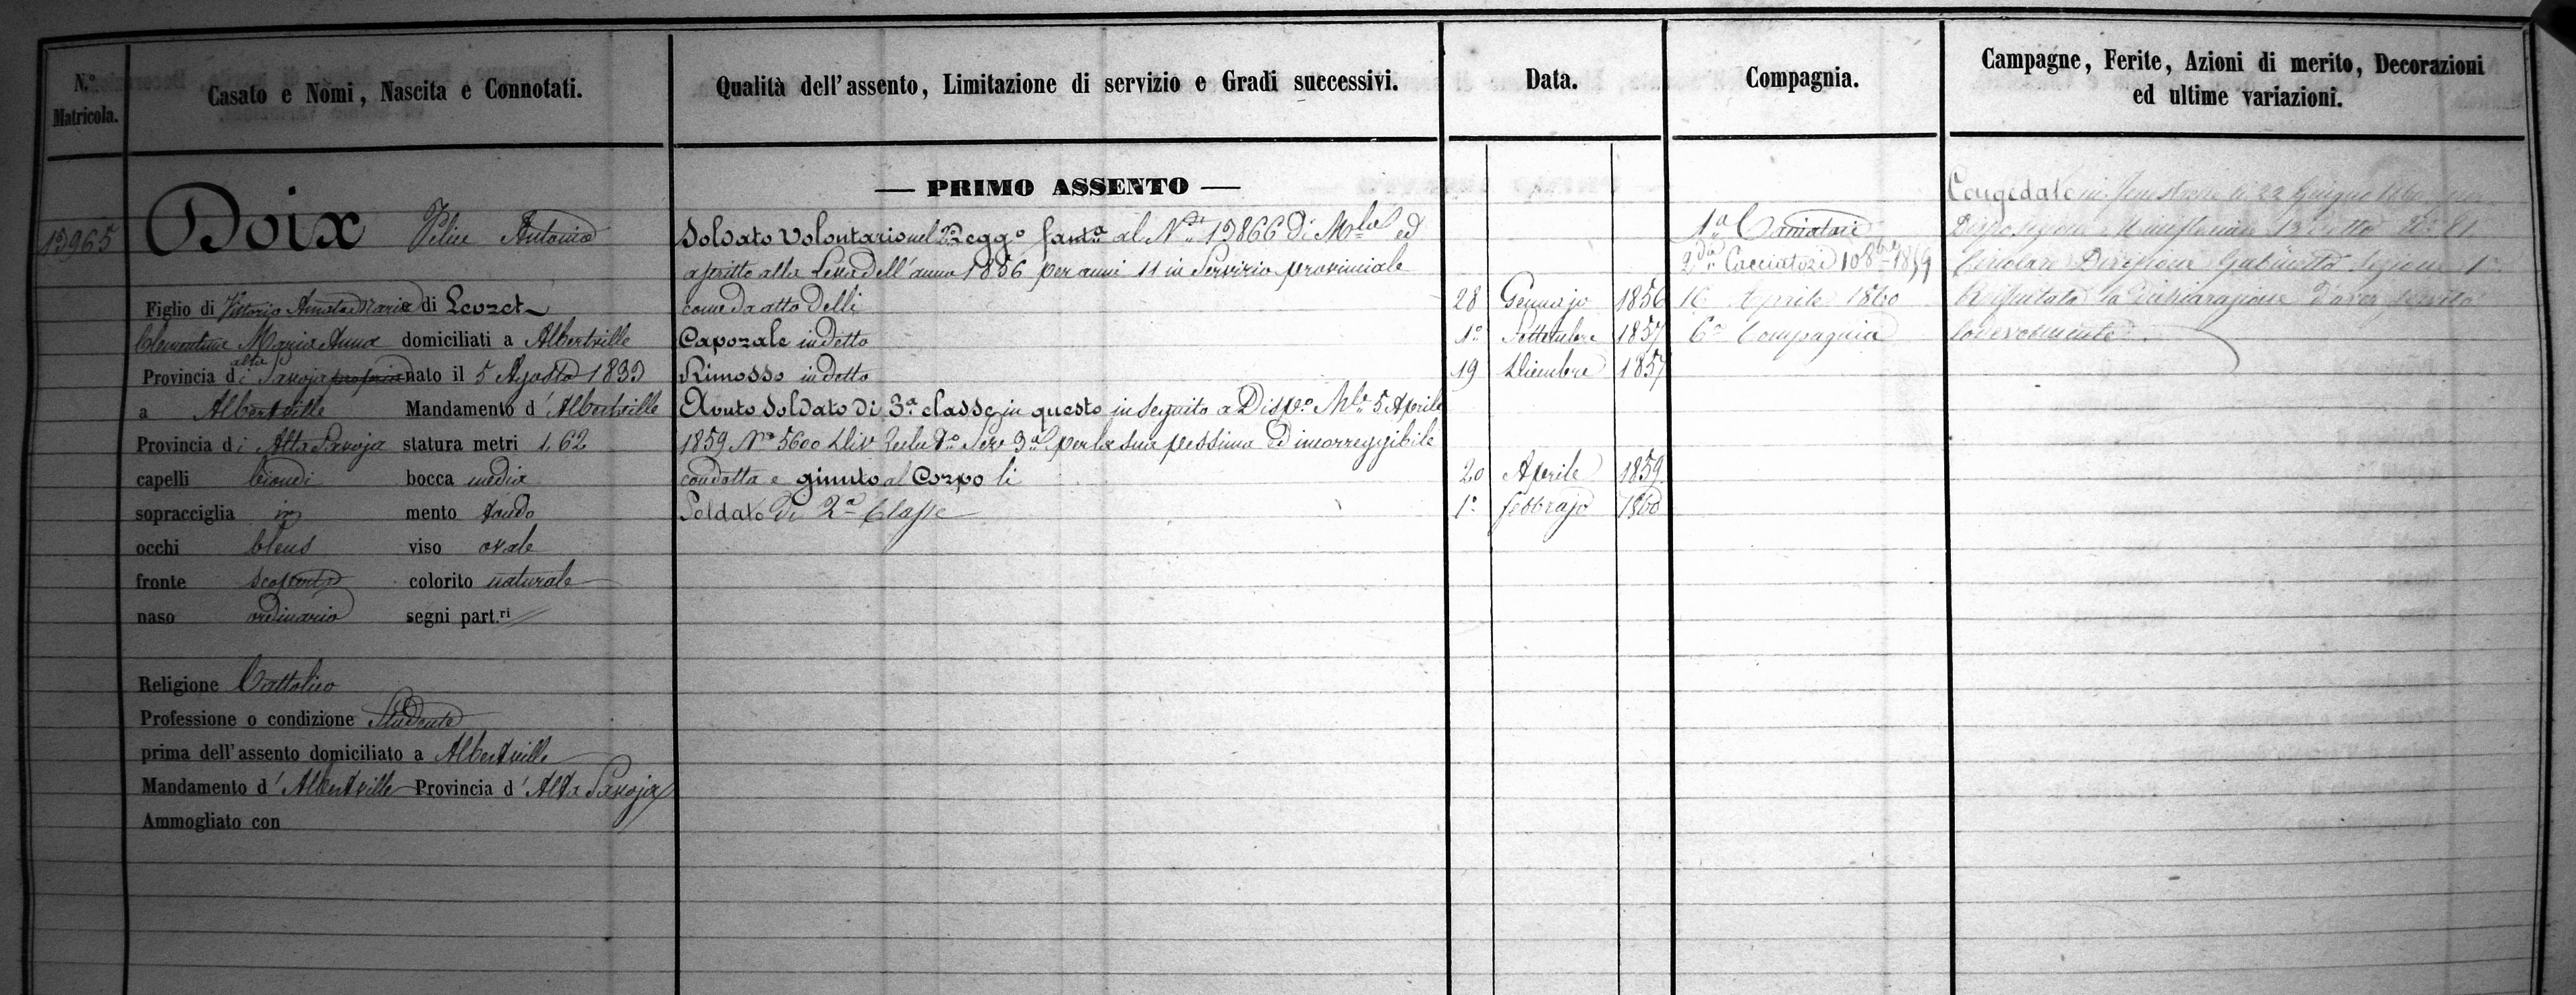 N.° Matricola.
Casato e Nomi, Nascita e Connotati.
Qualità dell'assento, Limitazione di servizio e Gradi successivi.
Data.
Compagnia.
Campagne, Ferite, Azioni di merito, Decorazioni
ed ultime variazioni.
13965
Doix Felice Antonio
Figlio di Vittorio Amato Maria di Leozet
Clementine Maria Anna domiciliati a Albertville
alta
Provincia di Savoja propria nato il 5 Agosto 1839
a Albertville Mandamento d'Albertville
Provincia di Alta Savoja statura metri 1,62
capelli biondi bocca media
sopracciglia id mento tondo
occhi bleus viso ovale
fronte scoperta colorito naturale
naso ordinario segni part.ri //
Religione Cattolico
Professione o condizione Studente
prima dell'assento domiciliato a Albertville
Mandamento d'Albertville Provincia d'Alta Savoja
Ammogliato con
— PRIMO ASSENTO —
Soldato Volontario nel 2 Regg° fant.a al N.° 13866 di M.la ed
ascritto alla Leva dell'anno 1856 per anni 11 in Servizio provinciale
come da atto delli 28 Gennajo 1856
Caporale in detto 1° Settembre 1857
Rimosso in detto 19 Dicembre 1857
Avuto Soldato di 3.a classe in questo in seguito a Disp.e M.le 5 Aprile
1859 N° 5600 Div. Sez 3.a per la sua pessima ed incorreggibile
condotta e giunto al Corpo li 20 Aprile 1859
Soldato di 2.a Classe 1° febbrajo 1860
1.a
2.da Cacciatori 10 8bre 1859
16 Aprile 1860
6.a Compagnia
Congedato in Fenestrelle li 22 Giugno 1860 per
Disposizione Ministeriale 13 detto N° 81
Circolare Direzione Gabinetto Sezione 1.a
la dichiarazione d'aver servito